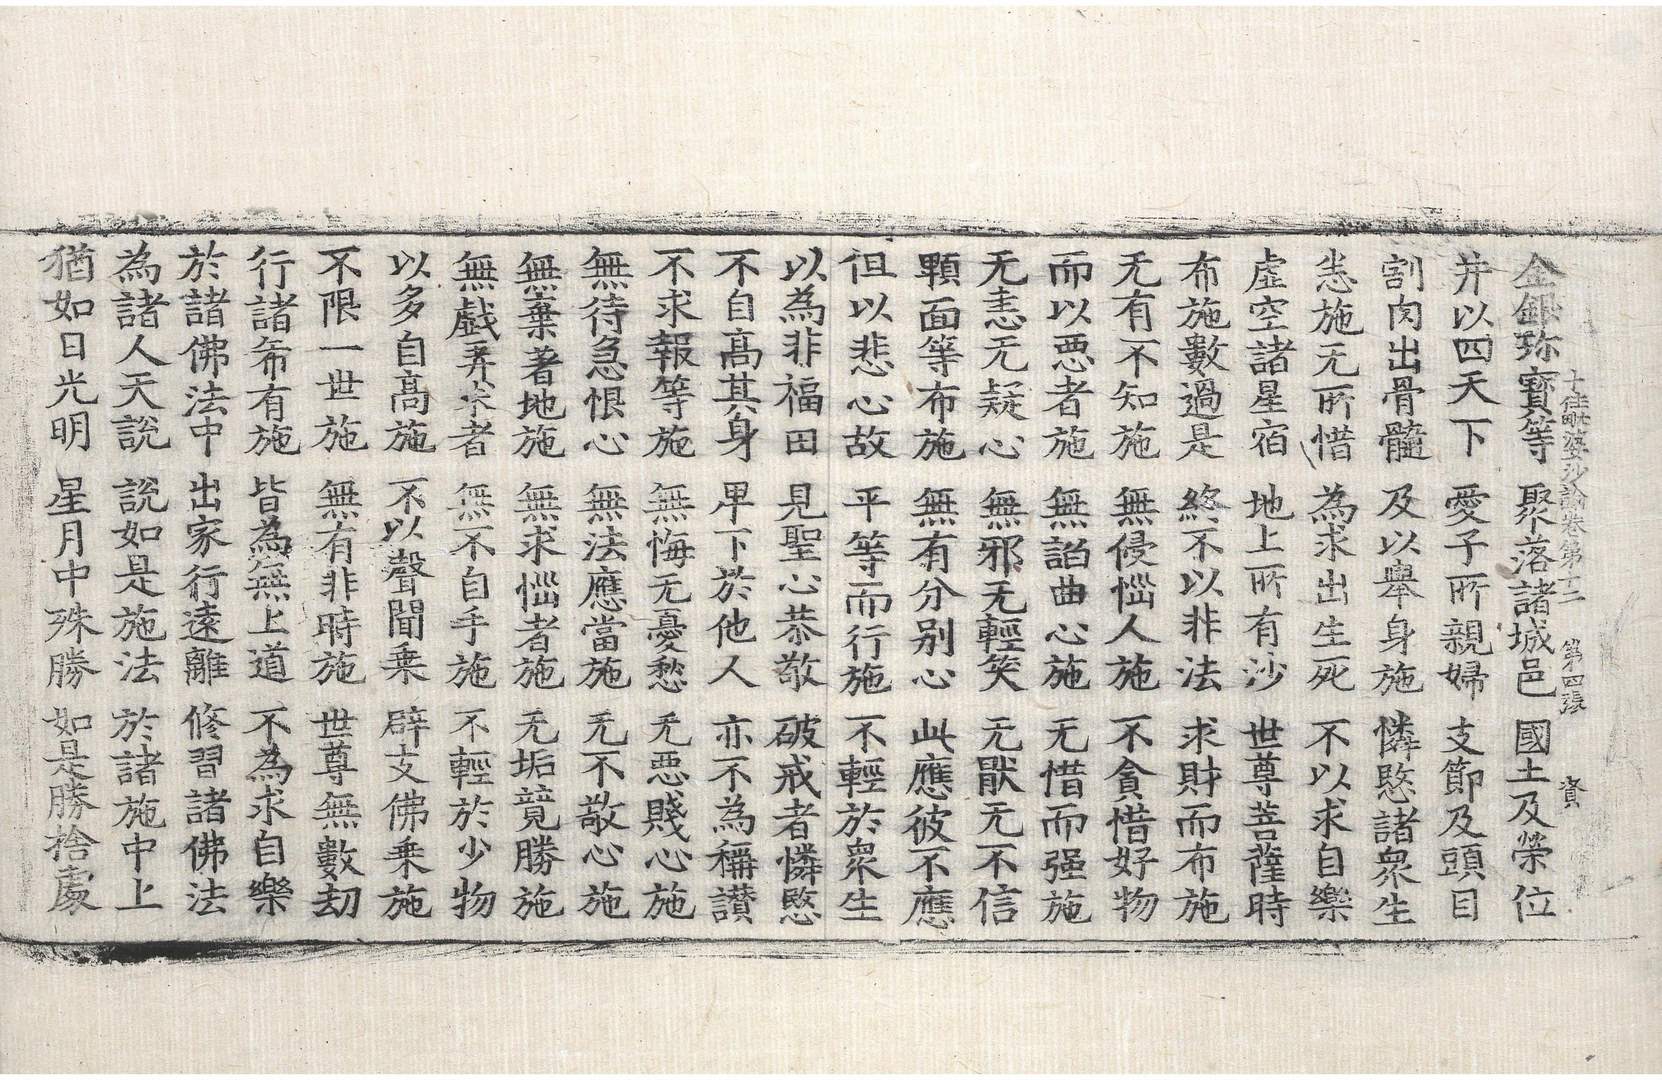 十住毗婆沙論卷第十二　第四張　資
金銀珎寳等　聚落諸城邑　國土及榮位
并以四天下　愛子所親婦　支節及頭目
割肉出骨髓　及以舉身施　憐愍諸衆生
恙施无所惜　為求出生死　不以求自樂
虛空諸星宿　地上所有沙　世尊菩薩時
布施數過是　終不以非法　求財而布施
无有不知施　無侵惱人施　不貪惜好物
而以惡者施　無諂曲心施　无惜而强施
无恚无疑心　無邪无輕笑　无猒无不信
顆面等布施　無有分別心　此應彼不應
但以悲心故　平等而行施　不輕於衆生
以為非福田　見聖心恭敬　破戒者憐愍
不自髙其身　卑下於他人　亦不為稱讃
不求報等施　無悔无憂愁　无惡賤心施
無待急恨心　無法應當施　无不敬心施
無棄著地施　無求惱者施　无垢競勝施
無戯弄求者　無不自手施　不輕於少物
以多自髙施　不以聲聞乗　辟支佛乗施
不限一世施　無有非時施　世尊無數劫
行諸希有施　皆為無上道　不為求自樂
於諸佛法中　出家行遠離　修習諸佛法
為諸人天說　說如是施法　於諸施中上
猶如日光明　星月中殊勝　如是勝捨處